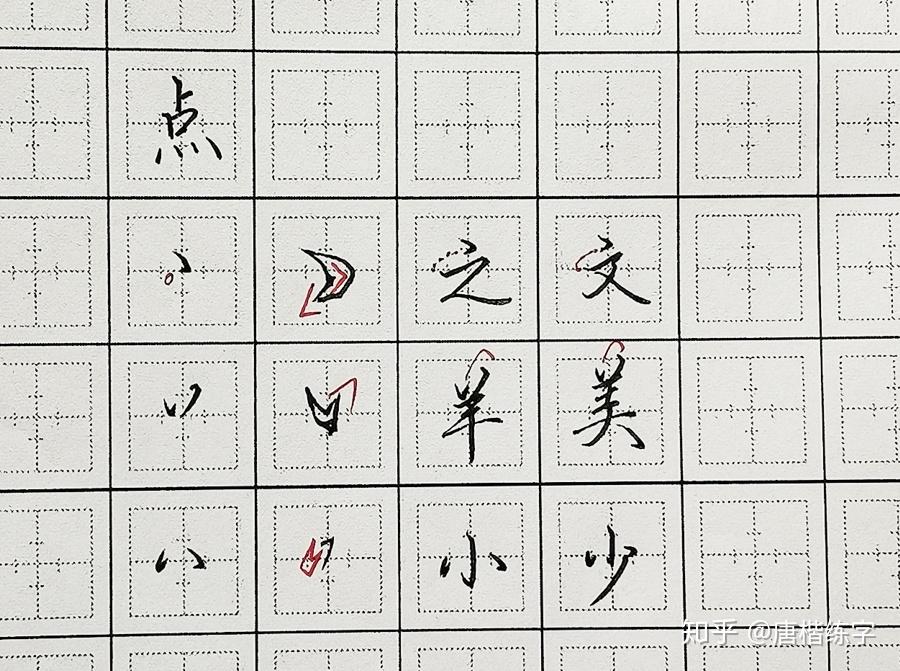 点
之 文
羊 美
小 少
知乎 @唐楷练字